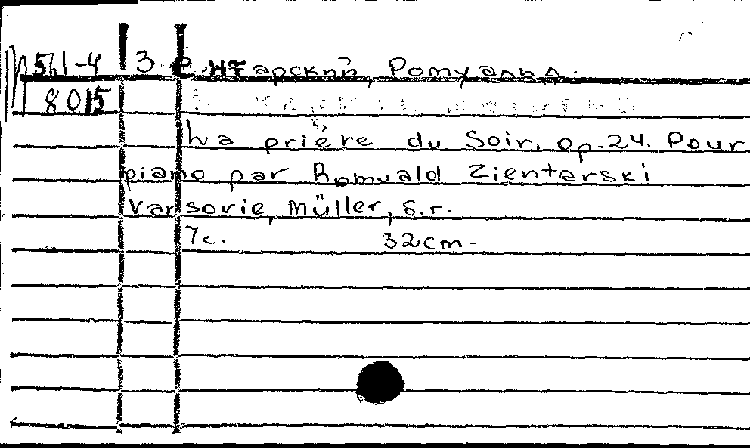 М 561-4 Зентарский, Ромуальд.
8015
La prière du Soir, op. 24. Pour
piano par Romuald Zientarski
Varsovie, Müller, б.г.
7с. 32cm-